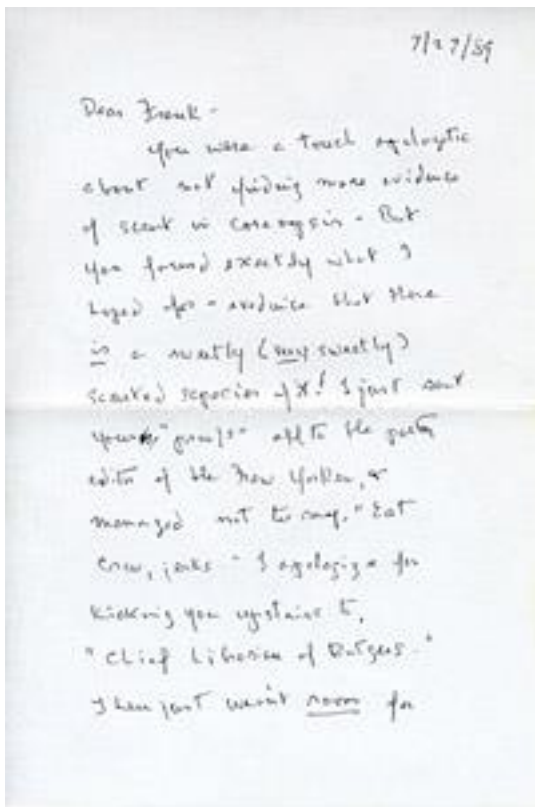 7/27/89
Dear Frank -
You were a touch apologetic
about not finding more evidence
of scent in coreopsis - But
you found exactly what I
hoped for - evidence that there
is a sweetly (very sweetly)
scented species of it! I just sent
your "proofs" off to the poetry
editor of the New Yorker, &
managed not to say, "Eat
Crow, jerks" I apologize for
kicking you upstairs to,
"Chief Librarian of Rutgers."
There just wasn't room for